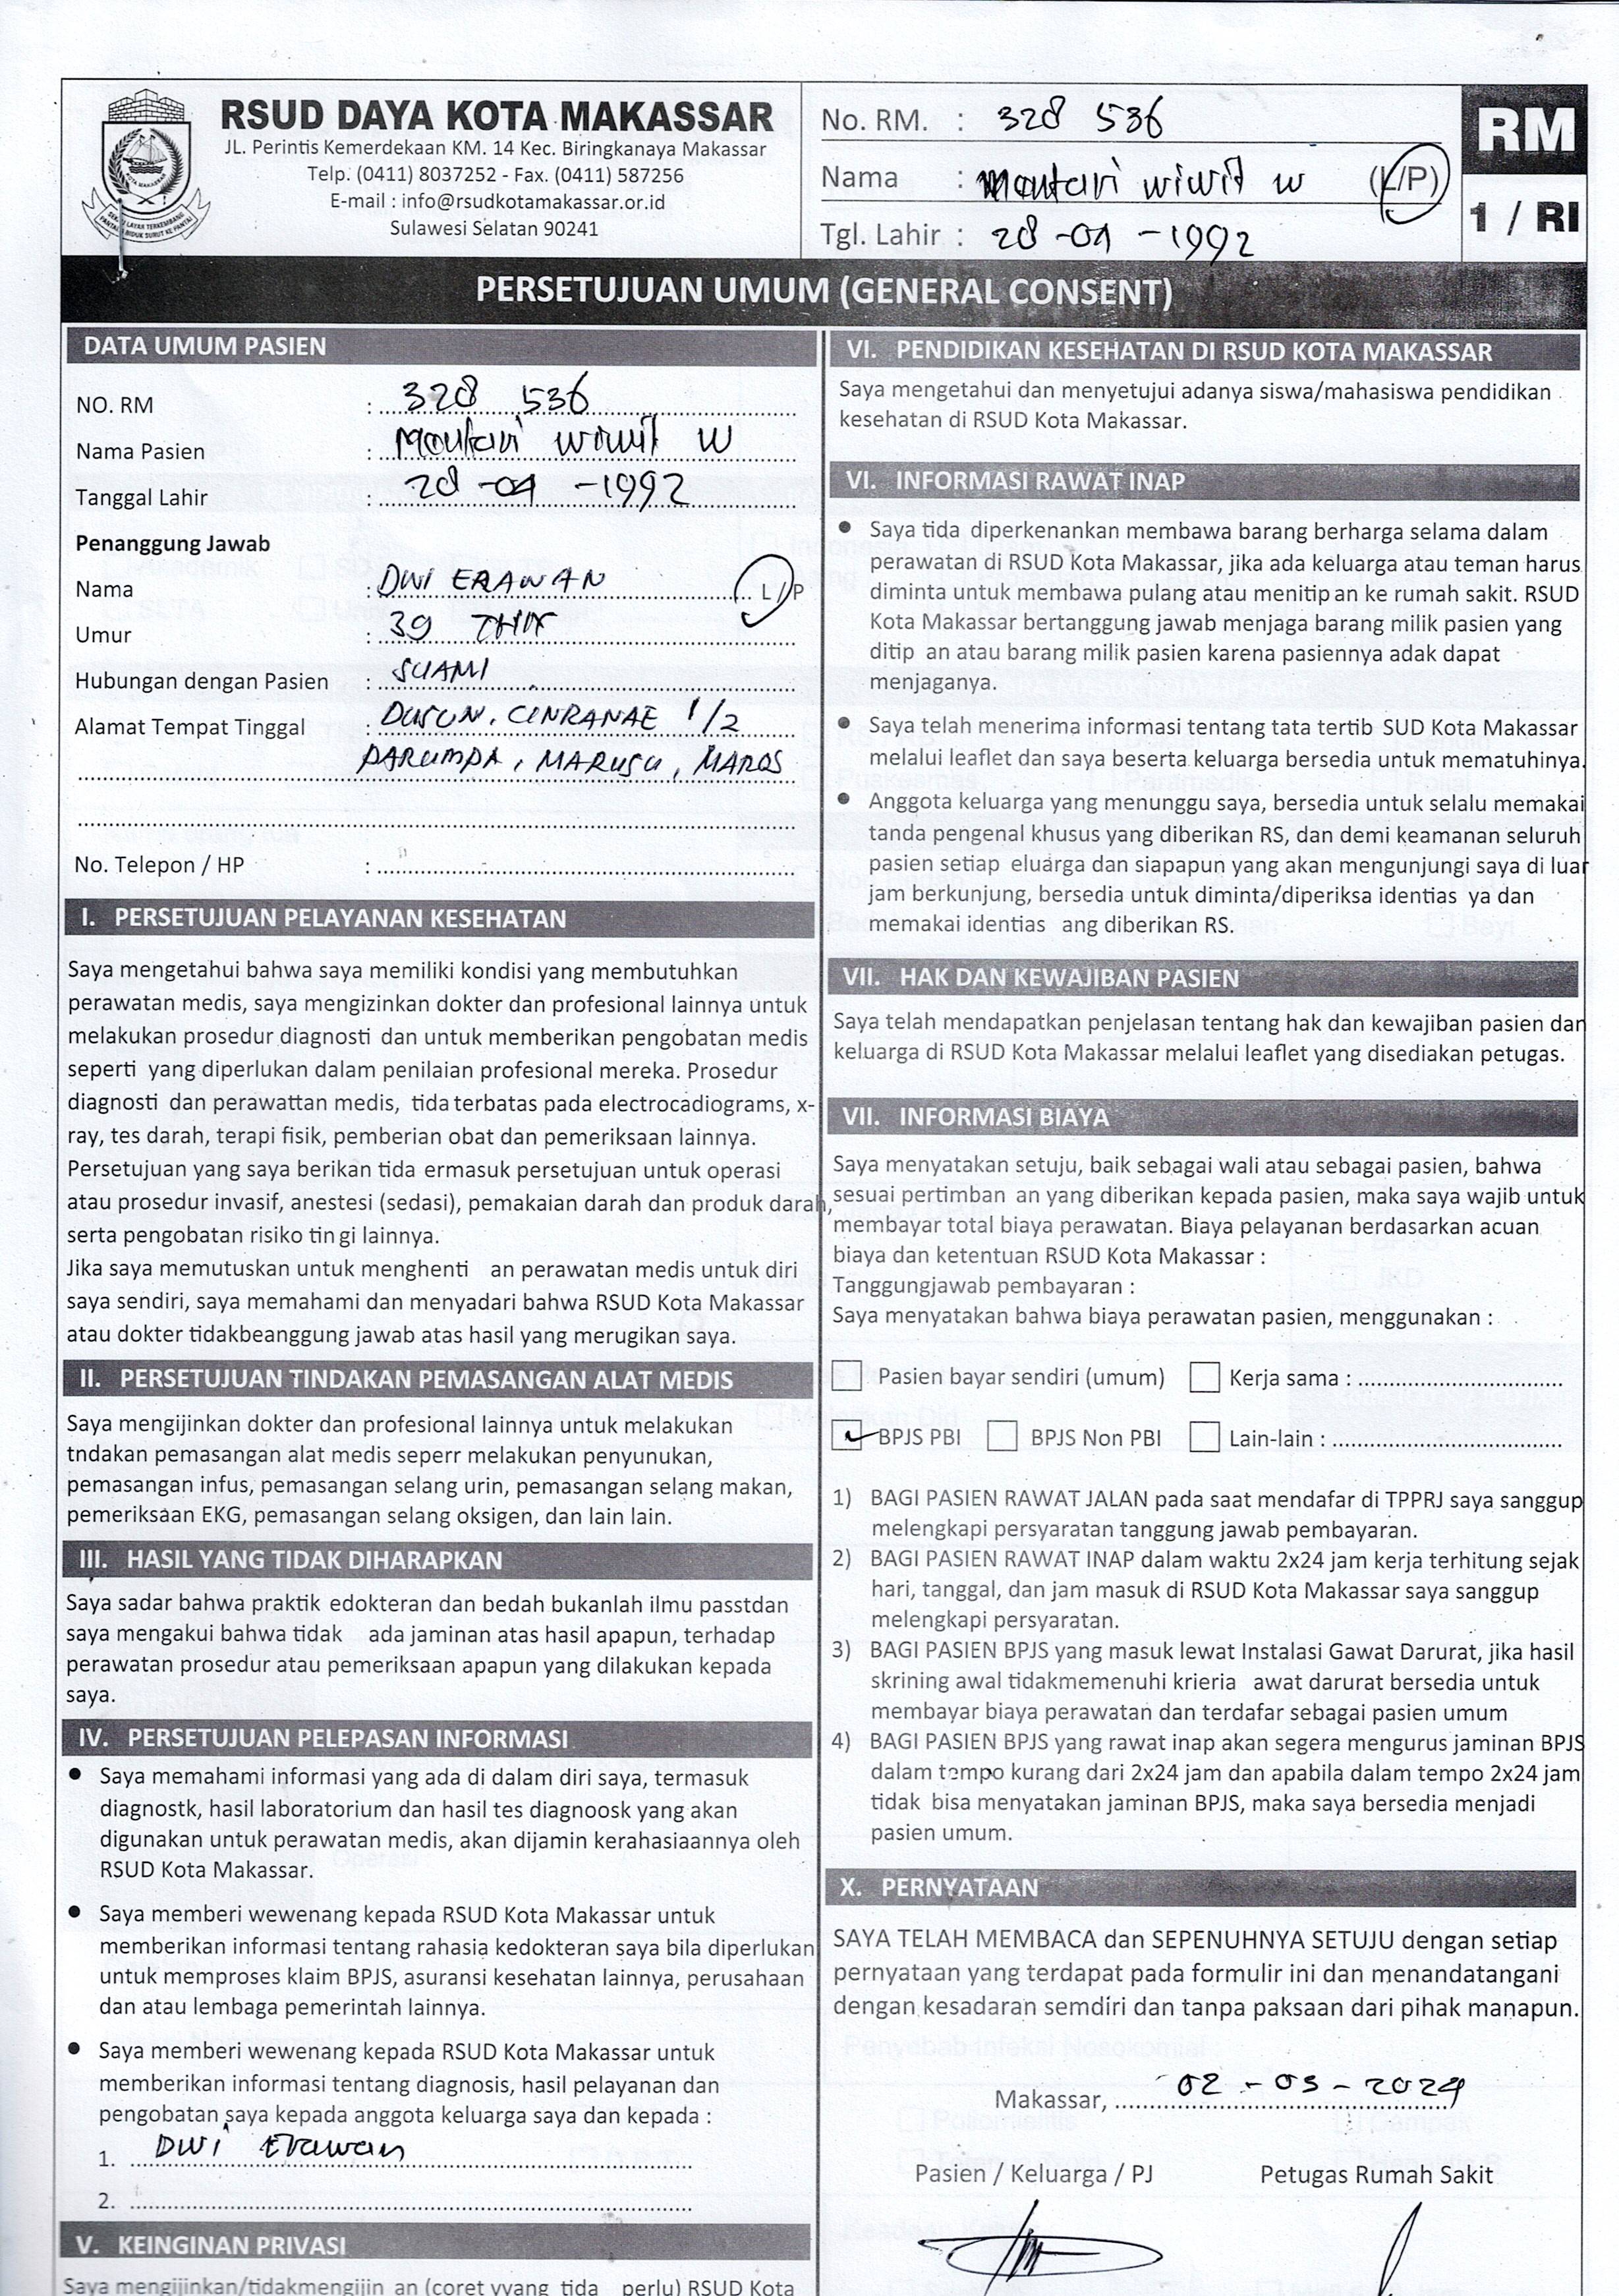 RSUD DAYA KOTA MAKASSAR
JL. Perintis Kemerdekaan KM. 14 Kec. Biringkanaya Makassar
Telp. (0411) 8037252 - Fax. (0411) 587256
E-mail : info@rsudkotamakassar.or.id
Sulawesi Selatan 90241
No. RM. : 328 536
Nama : wiwit w (L/P)
Tgl. Lahir : 28 -04 -1992
RM
1 / RI
PERSETUJUAN UMUM (GENERAL CONSENT)
DATA UMUM PASIEN
NO. RM : 328 536
Nama Pasien : wiwit W
Tanggal Lahir : 28 -04 -1992
Penanggung Jawab
Nama : DWI ERAWAN L/P
Umur : 39 THN
Hubungan dengan Pasien : SUAMI
Alamat Tempat Tinggal : DUSUN. CENRANAE 1/2
MARUSU, MAROS
No. Telepon / HP :
I. PERSETUJUAN PELAYANAN KESEHATAN
Saya mengetahui bahwa saya memiliki kondisi yang membutuhkan
perawatan medis, saya mengizinkan dokter dan profesional lainnya untuk
melakukan prosedur diagnosti dan untuk memberikan pengobatan medis
seperti yang diperlukan dalam penilaian profesional mereka. Prosedur
diagnosti dan perawattan medis, tida terbatas pada electrocadiograms, x-
ray, tes darah, terapi fisik, pemberian obat dan pemeriksaan lainnya.
Persetujuan yang saya berikan tida ermasuk persetujuan untuk operasi
atau prosedur invasif, anestesi (sedasi), pemakaian darah dan produk darah,
serta pengobatan risiko tin gi lainnya.
Jika saya memutuskan untuk menghenti an perawatan medis untuk diri
saya sendiri, saya memahami dan menyadari bahwa RSUD Kota Makassar
atau dokter tidakbeanggung jawab atas hasil yang merugikan saya.
II. PERSETUJUAN TINDAKAN PEMASANGAN ALAT MEDIS
Saya mengijinkan dokter dan profesional lainnya untuk melakukan
tndakan pemasangan alat medis seperr melakukan penyunukan,
pemasangan infus, pemasangan selang urin, pemasangan selang makan,
pemeriksaan EKG, pemasangan selang oksigen, dan lain lain.
III. HASIL YANG TIDAK DIHARAPKAN
Saya sadar bahwa praktik edokteran dan bedah bukanlah ilmu passtdan
saya mengakui bahwa tidak ada jaminan atas hasil apapun, terhadap
perawatan prosedur atau pemeriksaan apapun yang dilakukan kepada
saya.
IV. PERSETUJUAN PELEPASAN INFORMASI
• Saya memahami informasi yang ada di dalam diri saya, termasuk
diagnostk, hasil laboratorium dan hasil tes diagnoosk yang akan
digunakan untuk perawatan medis, akan dijamin kerahasiaannya oleh
RSUD Kota Makassar.
• Saya memberi wewenang kepada RSUD Kota Makassar untuk
memberikan informasi tentang rahasia kedokteran saya bila diperlukan
untuk memproses klaim BPJS, asuransi kesehatan lainnya, perusahaan
dan atau lembaga pemerintah lainnya.
• Saya memberi wewenang kepada RSUD Kota Makassar untuk
memberikan informasi tentang diagnosis, hasil pelayanan dan
pengobatan saya kepada anggota keluarga saya dan kepada :
1. Dwi Erawan
2.
V. KEINGINAN PRIVASI
Saya mengijinkan/tidakmengijin an (coret yyang tida perlu) RSUD Kota
VI. PENDIDIKAN KESEHATAN DI RSUD KOTA MAKASSAR
Saya mengetahui dan menyetujui adanya siswa/mahasiswa pendidikan
kesehatan di RSUD Kota Makassar.
VI. INFORMASI RAWAT INAP
• Saya tida diperkenankan membawa barang berharga selama dalam
perawatan di RSUD Kota Makassar, jika ada keluarga atau teman harus
diminta untuk membawa pulang atau menitip an ke rumah sakit. RSUD
Kota Makassar bertanggung jawab menjaga barang milik pasien yang
ditip an atau barang milik pasien karena pasiennya adak dapat
menjaganya.
• Saya telah menerima informasi tentang tata tertib SUD Kota Makassar
melalui leaflet dan saya beserta keluarga bersedia untuk mematuhinya.
• Anggota keluarga yang menunggu saya, bersedia untuk selalu memakai
tanda pengenal khusus yang diberikan RS, dan demi keamanan seluruh
pasien setiap eluarga dan siapapun yang akan mengunjungi saya di luar
jam berkunjung, bersedia untuk diminta/diperiksa identias ya dan
memakai identias ang diberikan RS.
VII. HAK DAN KEWAJIBAN PASIEN
Saya telah mendapatkan penjelasan tentang hak dan kewajiban pasien dan
keluarga di RSUD Kota Makassar melalui leaflet yang disediakan petugas.
VII. INFORMASI BIAYA
Saya menyatakan setuju, baik sebagai wali atau sebagai pasien, bahwa
sesuai pertimban an yang diberikan kepada pasien, maka saya wajib untuk
membayar total biaya perawatan. Biaya pelayanan berdasarkan acuan
biaya dan ketentuan RSUD Kota Makassar :
Tanggungjawab pembayaran :
Saya menyatakan bahwa biaya perawatan pasien, menggunakan :
Pasien bayar sendiri (umum) Kerja sama :
BPJS PBI BPJS Non PBI Lain-lain :
1) BAGI PASIEN RAWAT JALAN pada saat mendafar di TPPRJ saya sanggup
melengkapi persyaratan tanggung jawab pembayaran.
2) BAGI PASIEN RAWAT INAP dalam waktu 2x24 jam kerja terhitung sejak
hari, tanggal, dan jam masuk di RSUD Kota Makassar saya sanggup
melengkapi persyaratan.
3) BAGI PASIEN BPJS yang masuk lewat Instalasi Gawat Darurat, jika hasil
skrining awal tidakmemenuhi krieria awat darurat bersedia untuk
membayar biaya perawatan dan terdafar sebagai pasien umum
4) BAGI PASIEN BPJS yang rawat inap akan segera mengurus jaminan BPJS
dalam tempo kurang dari 2x24 jam dan apabila dalam tempo 2x24 jam
tidak bisa menyatakan jaminan BPJS, maka saya bersedia menjadi
pasien umum.
X. PERNYATAAN
SAYA TELAH MEMBACA dan SEPENUHNYA SETUJU dengan setiap
pernyataan yang terdapat pada formulir ini dan menandatangani
dengan kesadaran semdiri dan tanpa paksaan dari pihak manapun.
Makassar, 02 - 03 - 2024
Pasien / Keluarga / PJ Petugas Rumah Sakit